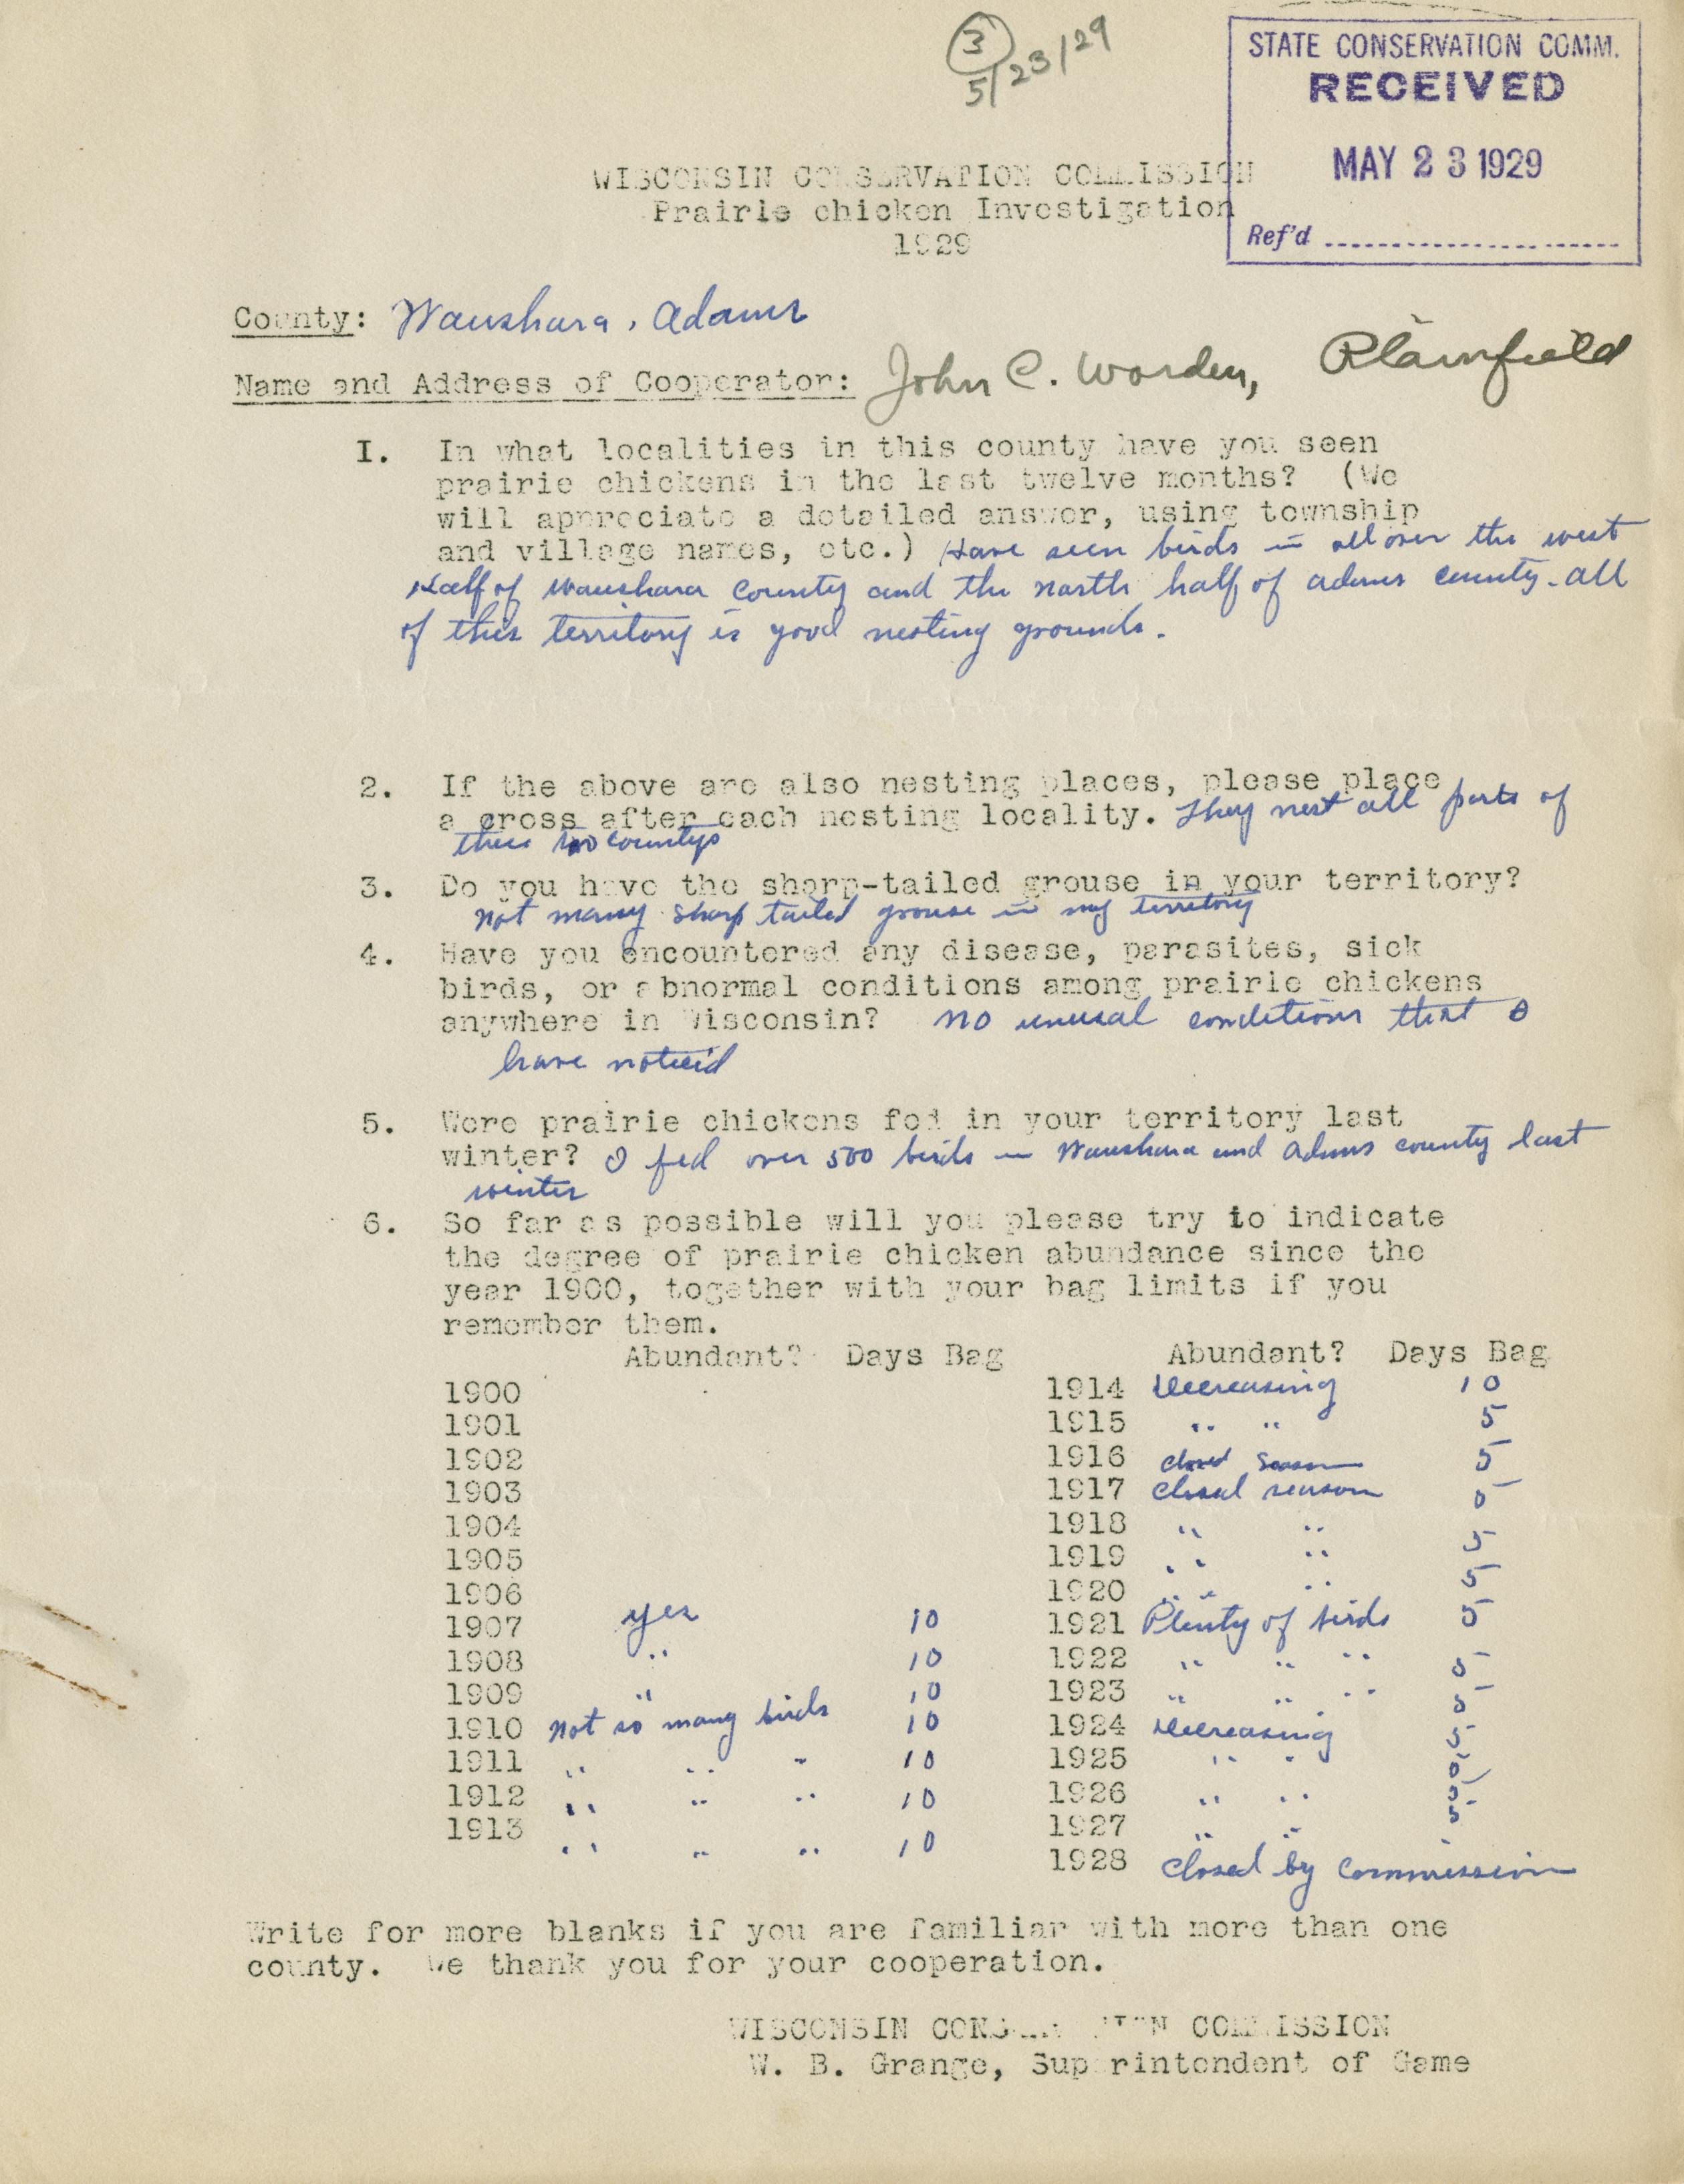 3
5/23/29
STATE CONSERVATION COMM.
RECEIVED
MAY 23 1929
Ref'd
WISCONSIN CONSERVATION COMMISSION
Prairie chicken Investigation
1929
County: Waushara, Adams
Name and Address of Cooperator: John C. Worden, Plainfield
I. In what localities in this county have you seen
prairie chickens in the last twelve months? (We
will appreciate a detailed answer, using township
and village names, etc.) Have seen birds in all over the west
Half of Waushara County and the north half of adams county - all
of this territory is good nesting grounds.
2. If the above are also nesting places, please place
a cross after each nesting locality. They nest all parts of
these two countys
3. Do you have the sharp-tailed grouse in your territory?
not many sharp tailed grouse in my territory
4. Have you encountered any disease, parasites, sick
birds, or abnormal conditions among prairie chickens
anywhere in Wisconsin? no unusal conditions that I
have noticed
5. Were prairie chickens fed in your territory last
winter? I fed over 500 birds in Waushara and Adams county last
winter
6. So far as possible will you please try to indicate
the degree of prairie chicken abundance since the
year 1900, together with your bag limits if you
remember them.
Abundant? Days Bag Abundant? Days Bag
1900 1914 Decreasing 10
1901 1915 " " 5
1902 1916 closed season 5
1903 1917 closed season 5
1904 1918 " " 5
1905 1919 " " 5
1906 1920 " " 5
1907 yes 10 1921 Plenty of birds
1908 " 10 1922 " " " 5
1909 " 10 1923 " " " 5
1910 not so many birds 10 1924 Decreasing 5
1911 " " " 10 1925 " " 5
1912 " " " 10 1926 " " 5
1913 " " " 10 1927 " " 5
1928 closed by commission
Write for more blanks if you are familiar with more than one
county. We thank you for your cooperation.
WISCONSIN CONSERVATION COMMISSION
W. B. Grange, Superintendent of Game